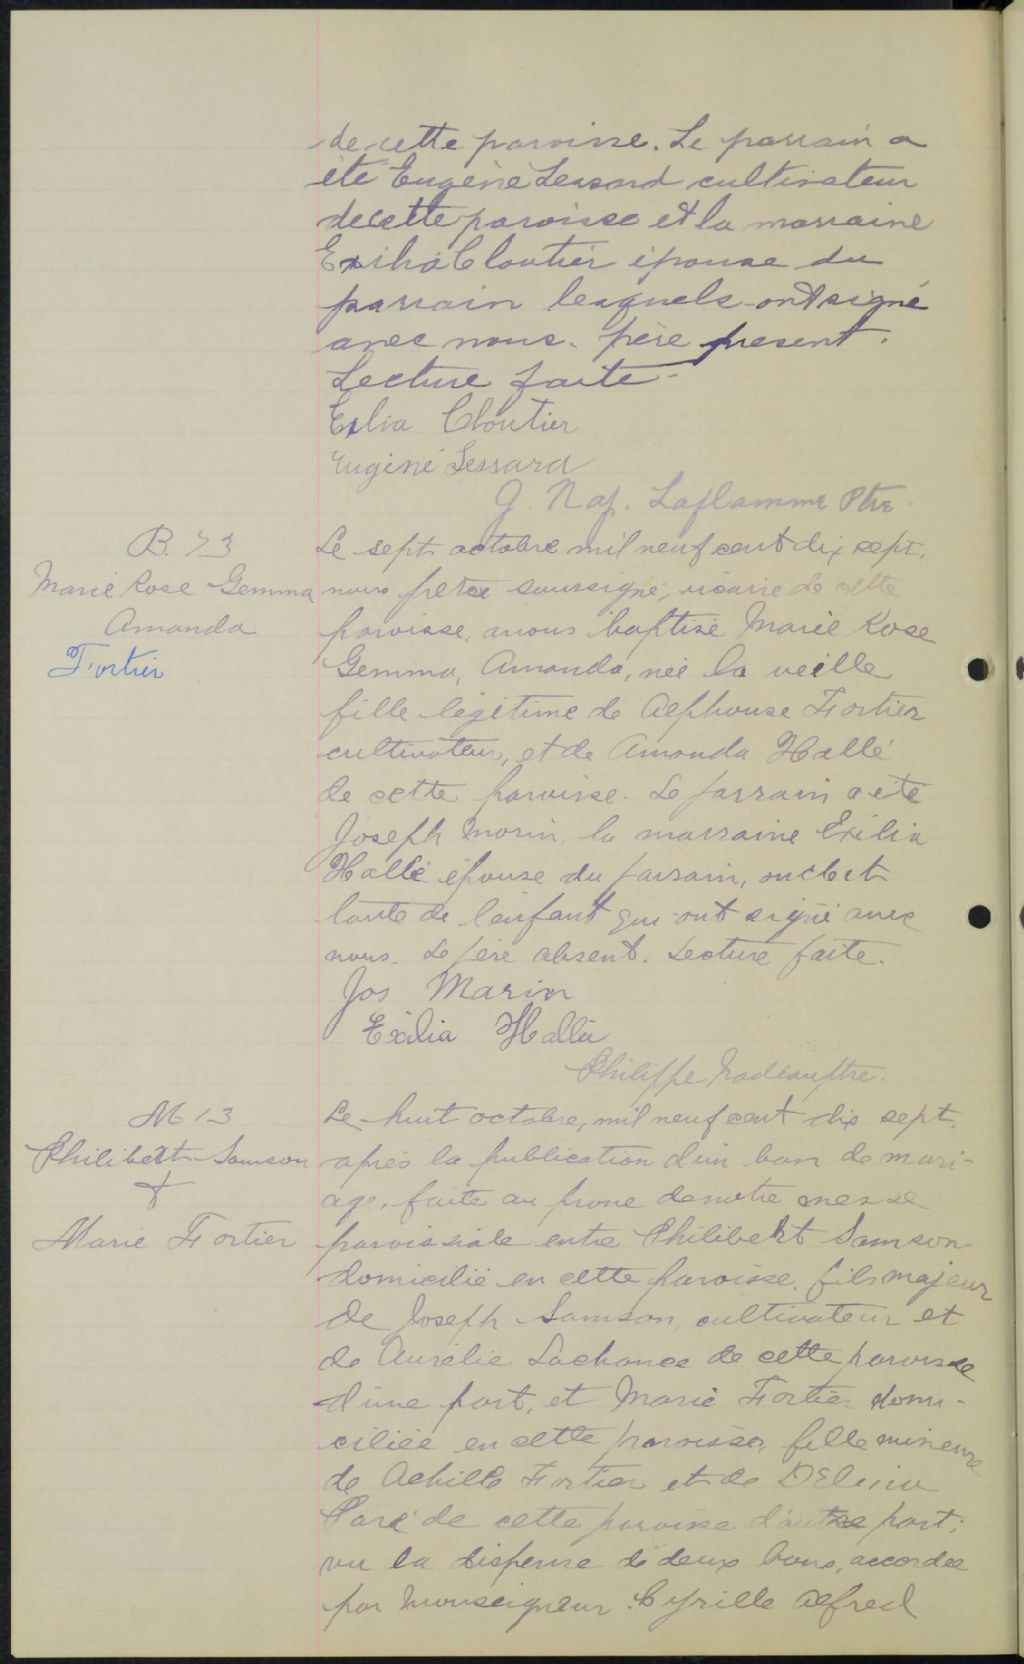 de cette paroisse. Le parrain a
été Eugène Lessard cultivateur
de cette paroisse et la marraine
Exilia Cloutier épouse du
parrain lesquels ont signé
avec nous. père present.
Lecture faite.
Exlia Cloutier
Eugène Lessard
J. Nap. Laflamme Ptre
B. 73
Marie Rose Gemma
Amanda
Fortier
Le sept octobre mil neuf cent dix sept,
nous pretre soussigné, vicaire de cette
paroisse, avons baptisé Marie Rose
Gemma, Amanda, née la veille
fille légitime de Alphonse Fortier
cultivateur, et de Amanda Hallé
de cette paroisse. Le parrain a été
Joseph Morin, la marraine Exilia
Hallé épouse du parrain, oncle et
tante de l'enfant qui ont signé avec
nous. Le père absent. Lecture faite.
Jos Marin
Exilia Hallé
Philippe Nadeau ptre.
M 13
Philibert Samson
&
Marie Fortier
Le huit octobre, mil neuf cent dix sept,
après la publication d'un ban de mari-
age, faite au prone de notre messe
paroissiale entre Philibert Samson
domicilié en cette paroisse, fils majeur
de Joseph Samson, cultivateur et
de Aurélie Lachance de cette paroisse
d'une part, et Marie Fortier domi-
ciliée en cette paroisse, fille mineure
de Achille Fortier et de Délina
Paré de cette paroisse d'autre part;
vu la dispense de deux bans, accordée
par Monseigneur Cyrille Alfred